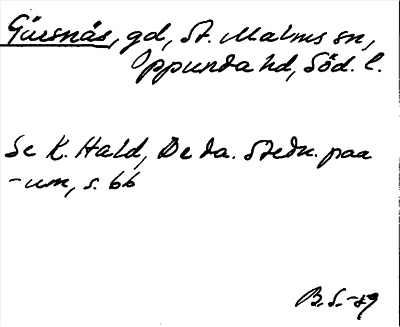 Gärsnäs, gd, St. Malms sn,
Oppunda hd, Söd. l.
Se K. Hald, De da. Stedn. paa
-um, s. 66
B.S.-89